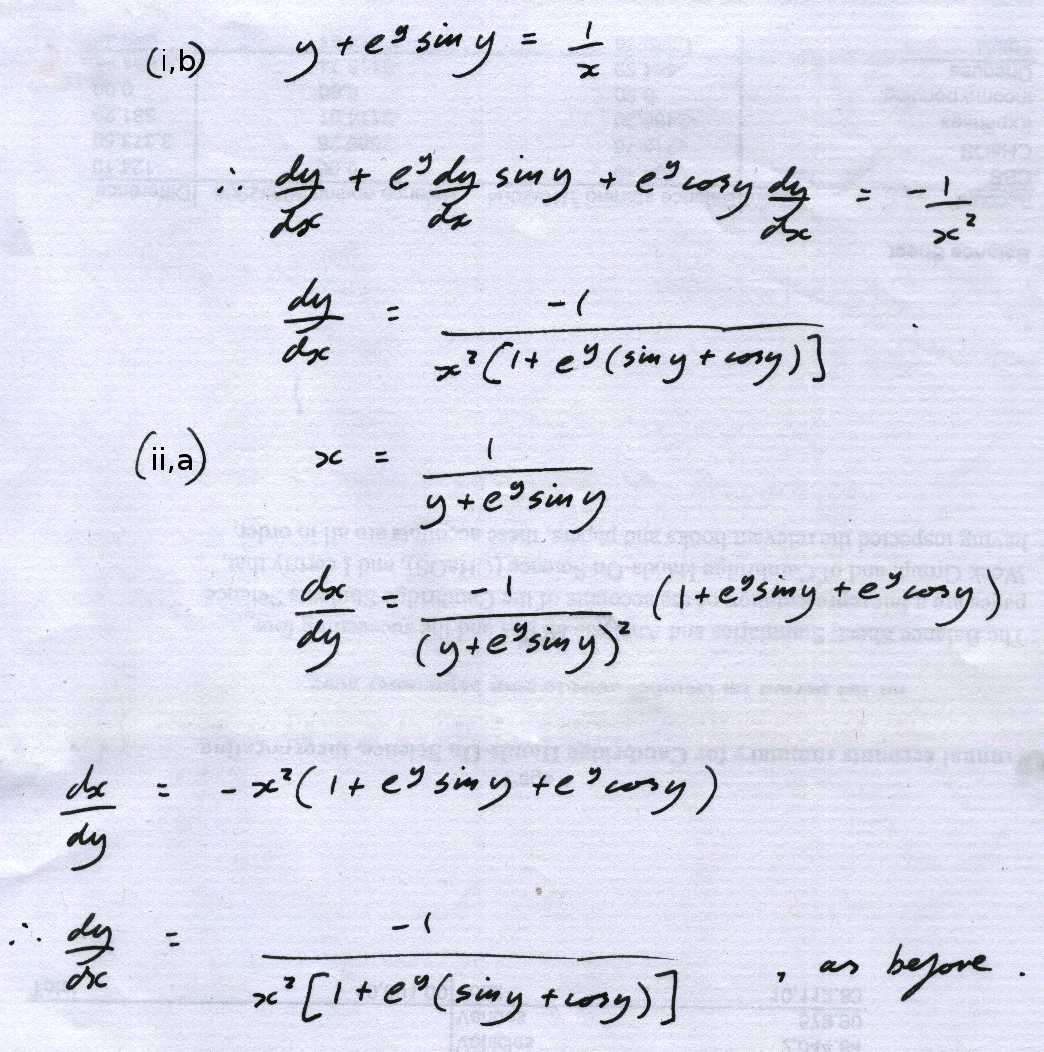 (i,b) y + e^y sin y = 1/x
∴ dy/dx + e^y dy/dx sin y + e^y cos y dy/dx = -1/x²
dy/dx = -1/(x²[1 + e^y(sin y + cos y)])
(ii,a) x = 1/(y + e^y sin y)
dx/dy = 1/(y + e^y sin y)² (1 + e^y sin y + e^y cos y)
dx/dy = -x²(1 + e^y sin y + e^y cos y)
∴ dy/dx = -1/(x²[1 + e^y(sin y + cos y)]), as before.